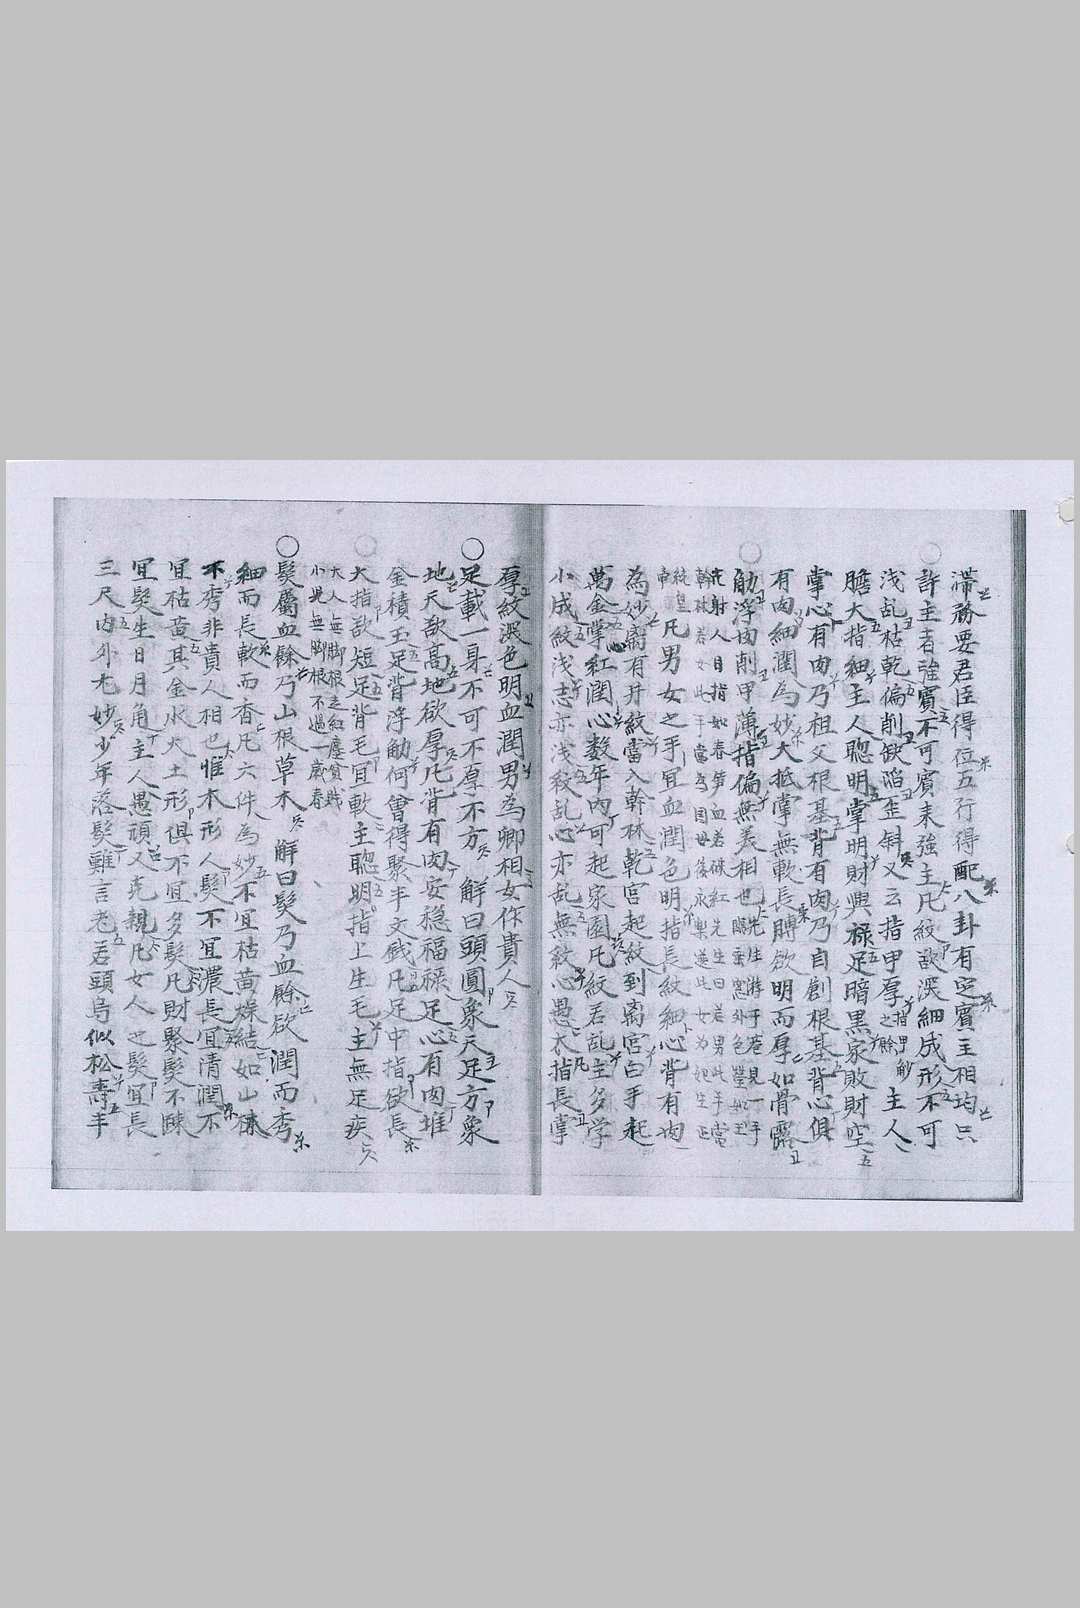 滯務要君臣得位五行得配八卦有定賓主相均只
許主者強賓不可賓來強主凡紋欲深細成形不可
浅乱枯乾偏削缺陷歪斜又云指甲厚主人
膽大指細主人聰明掌明財與祿足暗黑家敗財空
掌心有肉乃祖父根基背有肉乃自創根基背心俱
有肉細潤為妙大抵掌無軟長膊欲明而厚如骨露
觔浮肉削甲薄指偏無義相也
先生游于巷見一手
露垂窓外色瑩如玉
光射人目指如春笋血若硃紅先生曰若男此手當
幹林若女此手當為国母後永樂選此女為妃生正
統皇
帝
凡男女之手宜血潤色明指長紋細心背有肉
為妙離有井紋當入幹林乾宮起紋到离宮白手起
萬金掌紅潤心数年內可起家園凡紋若乱主多学
小成紋浅志亦浅紋乱心亦乱無紋心愚大指長掌
厚紋深色明血潤男為卿相女作貴人
足載一身不可不厚不方 解曰頭圓象天足方象
地天欲高地欲厚凡背有肉安穏福祿足心有肉堆
金積玉足背浮觔何曾得聚半文錢凡足中指欲長
大指欲短足背毛宜軟主聰明指上生毛主無足疾
大人無脚根走紅塵貧賎
小児無脚根不過一歲春
髮屬血餘乃山根草木 解曰髮乃血餘欲潤而秀
細而長軟而香凡六件為妙不宜枯黄燥結如山林
不秀非貴人相也惟木形人髮不宜濃長宜清潤不
宜枯黄其金水火土形俱不宜多髮凡財聚髮不踈
宜髮生日月角主人愚頑又克親凡女人之髮宜長
三尺內外尤妙少年落髮難言老若頭烏似松壽手